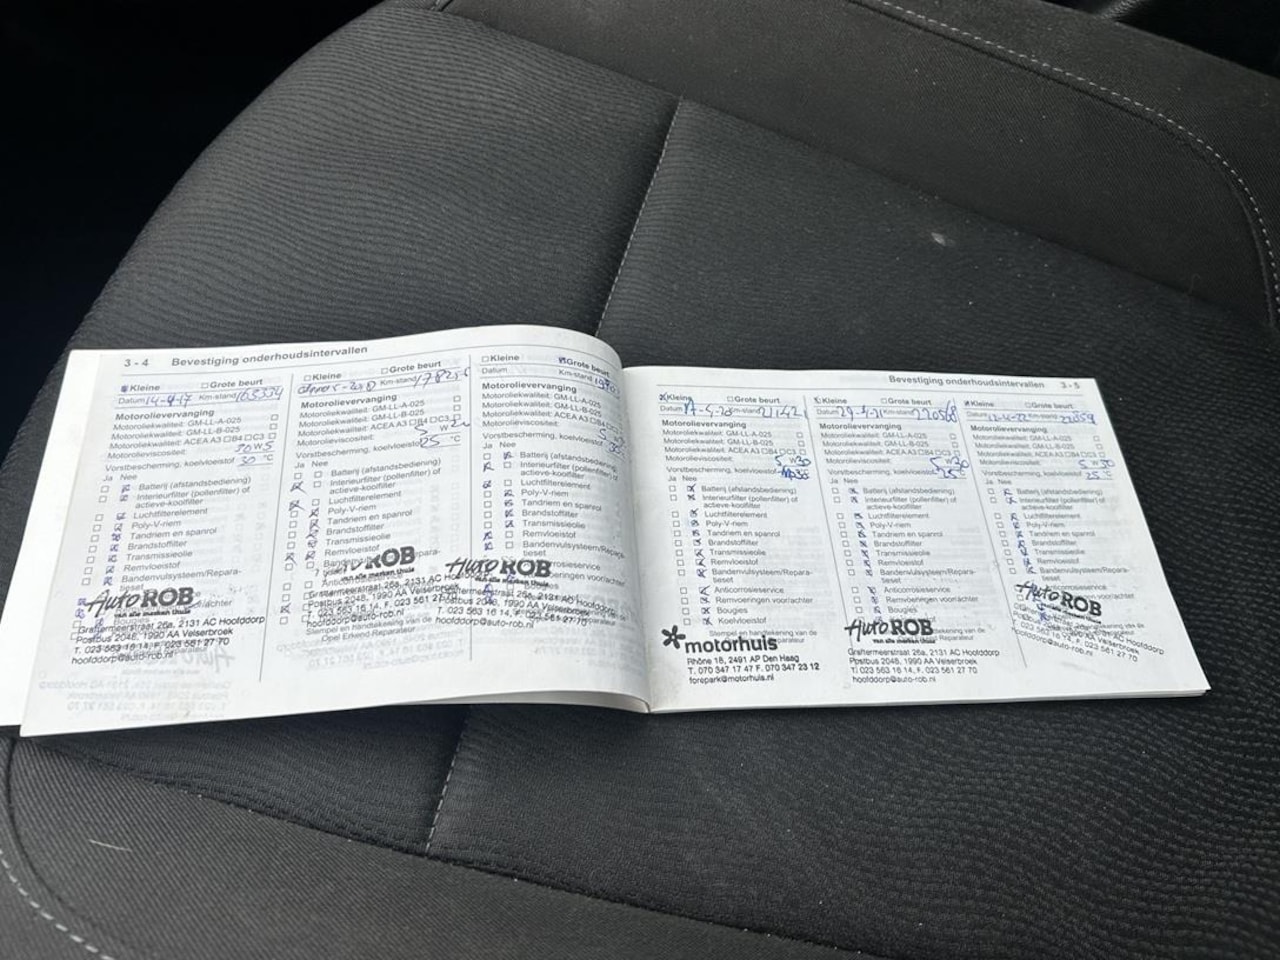 3 - 4 Bevestiging onderhoudsintervallen
Kleine Grote beurt
Datum 14-9-17 Km-stand 163334
Motorolievervanging
Motoroliekwaliteit: GM-LL-A-025
Motoroliekwaliteit: GM-LL-B-025
Motoroliekwaliteit: ACEA A3 B4 C3
Motorolieviscositeit: W5
Vorstbescherming, koelvloeistof 30 °C
Ja Nee
Batterij (afstandsbediening)
Interieurfilter (pollenfilter) of
actieve-koolfilter
Luchtfilterelement
Poly-V-riem
Tandriem en spanrol
Brandstoffilter
Transmissieolie
Remvloeistof
Bandenvulsysteem/Repara-
tieset
Auto ROB
Van alle merken thuis
Graftermeerstraat 26a, 2131 AC Hoofddorp
Postbus 2046, 1990 AA Velserbroek
T. 023 563 16 14, F. 023 561 27 70
hoofddorp@auto-rob.nl
Kleine Grote beurt
Km-stand
Motorolievervanging
Motoroliekwaliteit: GM-LL-A-025
Motoroliekwaliteit: GM-LL-B-025
Motoroliekwaliteit: ACEA A3 B4 C3
Motorolieviscositeit:
Vorstbescherming, koelvloeistof 25 °C
Ja Nee
Batterij (afstandsbediening)
Interieurfilter (pollenfilter) of
actieve-koolfilter
Luchtfilterelement
Poly-V-riem
Tandriem en spanrol
Brandstoffilter
Transmissieolie
Remvloeistof
ROB
Van alle merken thuis
Graftermeerstraat 26a, 2131 AC Hoofddorp
Postbus 2046, 1990 AA Velserbroek
T. 023 563 16 14, F. 023 561 27 70
hoofddorp@auto-rob.nl
Stempel en handtekening van de
Opel Erkend Reparateur
Kleine Grote beurt
Datum Km-stand
Motorolievervanging
Motoroliekwaliteit: GM-LL-A-025
Motoroliekwaliteit: GM-LL-B-025
Motoroliekwaliteit: ACEA A3
Motorolieviscositeit:
Vorstbescherming, koelvloeistof
Ja Nee
Batterij (afstandsbediening)
Interieurfilter (pollenfilter) of
actieve-koolfilter
Luchtfilterelement
Poly-V-riem
Tandriem en spanrol
Brandstoffilter
Transmissieolie
Remvloeistof
Bandenvulsysteem/Repara-
tieset
Auto ROB
Van alle merken thuis
2131 AC Hoofddorp
1990 AA Velserbroek
T. 023 563 16 14, F. 023 561 27 70
hoofddorp@auto-rob.nl
Bevestiging onderhoudsintervallen 3 - 5
Kleine Grote beurt
Datum Km-stand
Motorolievervanging
Motoroliekwaliteit: GM-LL-A-025
Motoroliekwaliteit: GM-LL-B-025
Motoroliekwaliteit: ACEA A3 B4 C3
Motorolieviscositeit: 5 W30
Vorstbescherming, koelvloeistof
Ja Nee
Batterij (afstandsbediening)
Interieurfilter (pollenfilter) of
actieve-koolfilter
Luchtfilterelement
Poly-V-riem
Tandriem en spanrol
Brandstoffilter
Transmissieolie
Remvloeistof
Bandenvulsysteem/Repara-
tieset
Anticorrosieservice
Remvoeringen voor/achter
Bougies
Koelvloeistof
motorhuis
Rhône 18, 2491 AP Den Haag
T. 070 347 17 47 F. 070 347 23 12
forepark@motorhuis.nl
Kleine Grote beurt
Datum 29-4-21 Km-stand 220568
Motorolievervanging
Motoroliekwaliteit: GM-LL-A-025
Motoroliekwaliteit: GM-LL-B-025
Motoroliekwaliteit: ACEA A3 B4 C3
Motorolieviscositeit: 5 W30
Vorstbescherming, koelvloeistof 25
Ja Nee
Batterij (afstandsbediening)
Interieurfilter (pollenfilter) of
actieve-koolfilter
Luchtfilterelement
Poly-V-riem
Tandriem en spanrol
Brandstoffilter
Transmissieolie
Remvloeistof
Bandenvulsysteem/Repara-
tieset
Anticorrosieservice
Remvoeringen voor/achter
Bougies
Auto ROB
Van alle merken thuis
Graftermeerstraat 26a, 2131 AC Hoofddorp
Postbus 2046, 1990 AA Velserbroek
T. 023 563 16 14, F. 023 561 27 70
hoofddorp@auto-rob.nl
Kleine Grote beurt
Datum Km-stand
Motorolievervanging
Motoroliekwaliteit: GM-LL-A-025
Motoroliekwaliteit: GM-LL-B-025
Motoroliekwaliteit: ACEA A3 B4 C3
Motorolieviscositeit: 5 W 30
Vorstbescherming, koelvloeistof 25 °C
Ja Nee
Batterij (afstandsbediening)
Interieurfilter (pollenfilter) of
actieve-koolfilter
Luchtfilterelement
Poly-V-riem
Tandriem en spanrol
Brandstoffilter
Transmissieolie
Remvloeistof
Bandenvulsysteem/Repara-
tieset
Auto ROB
2131 AC Hoofddorp
AA Velserbroek
F. 023 561 27 70